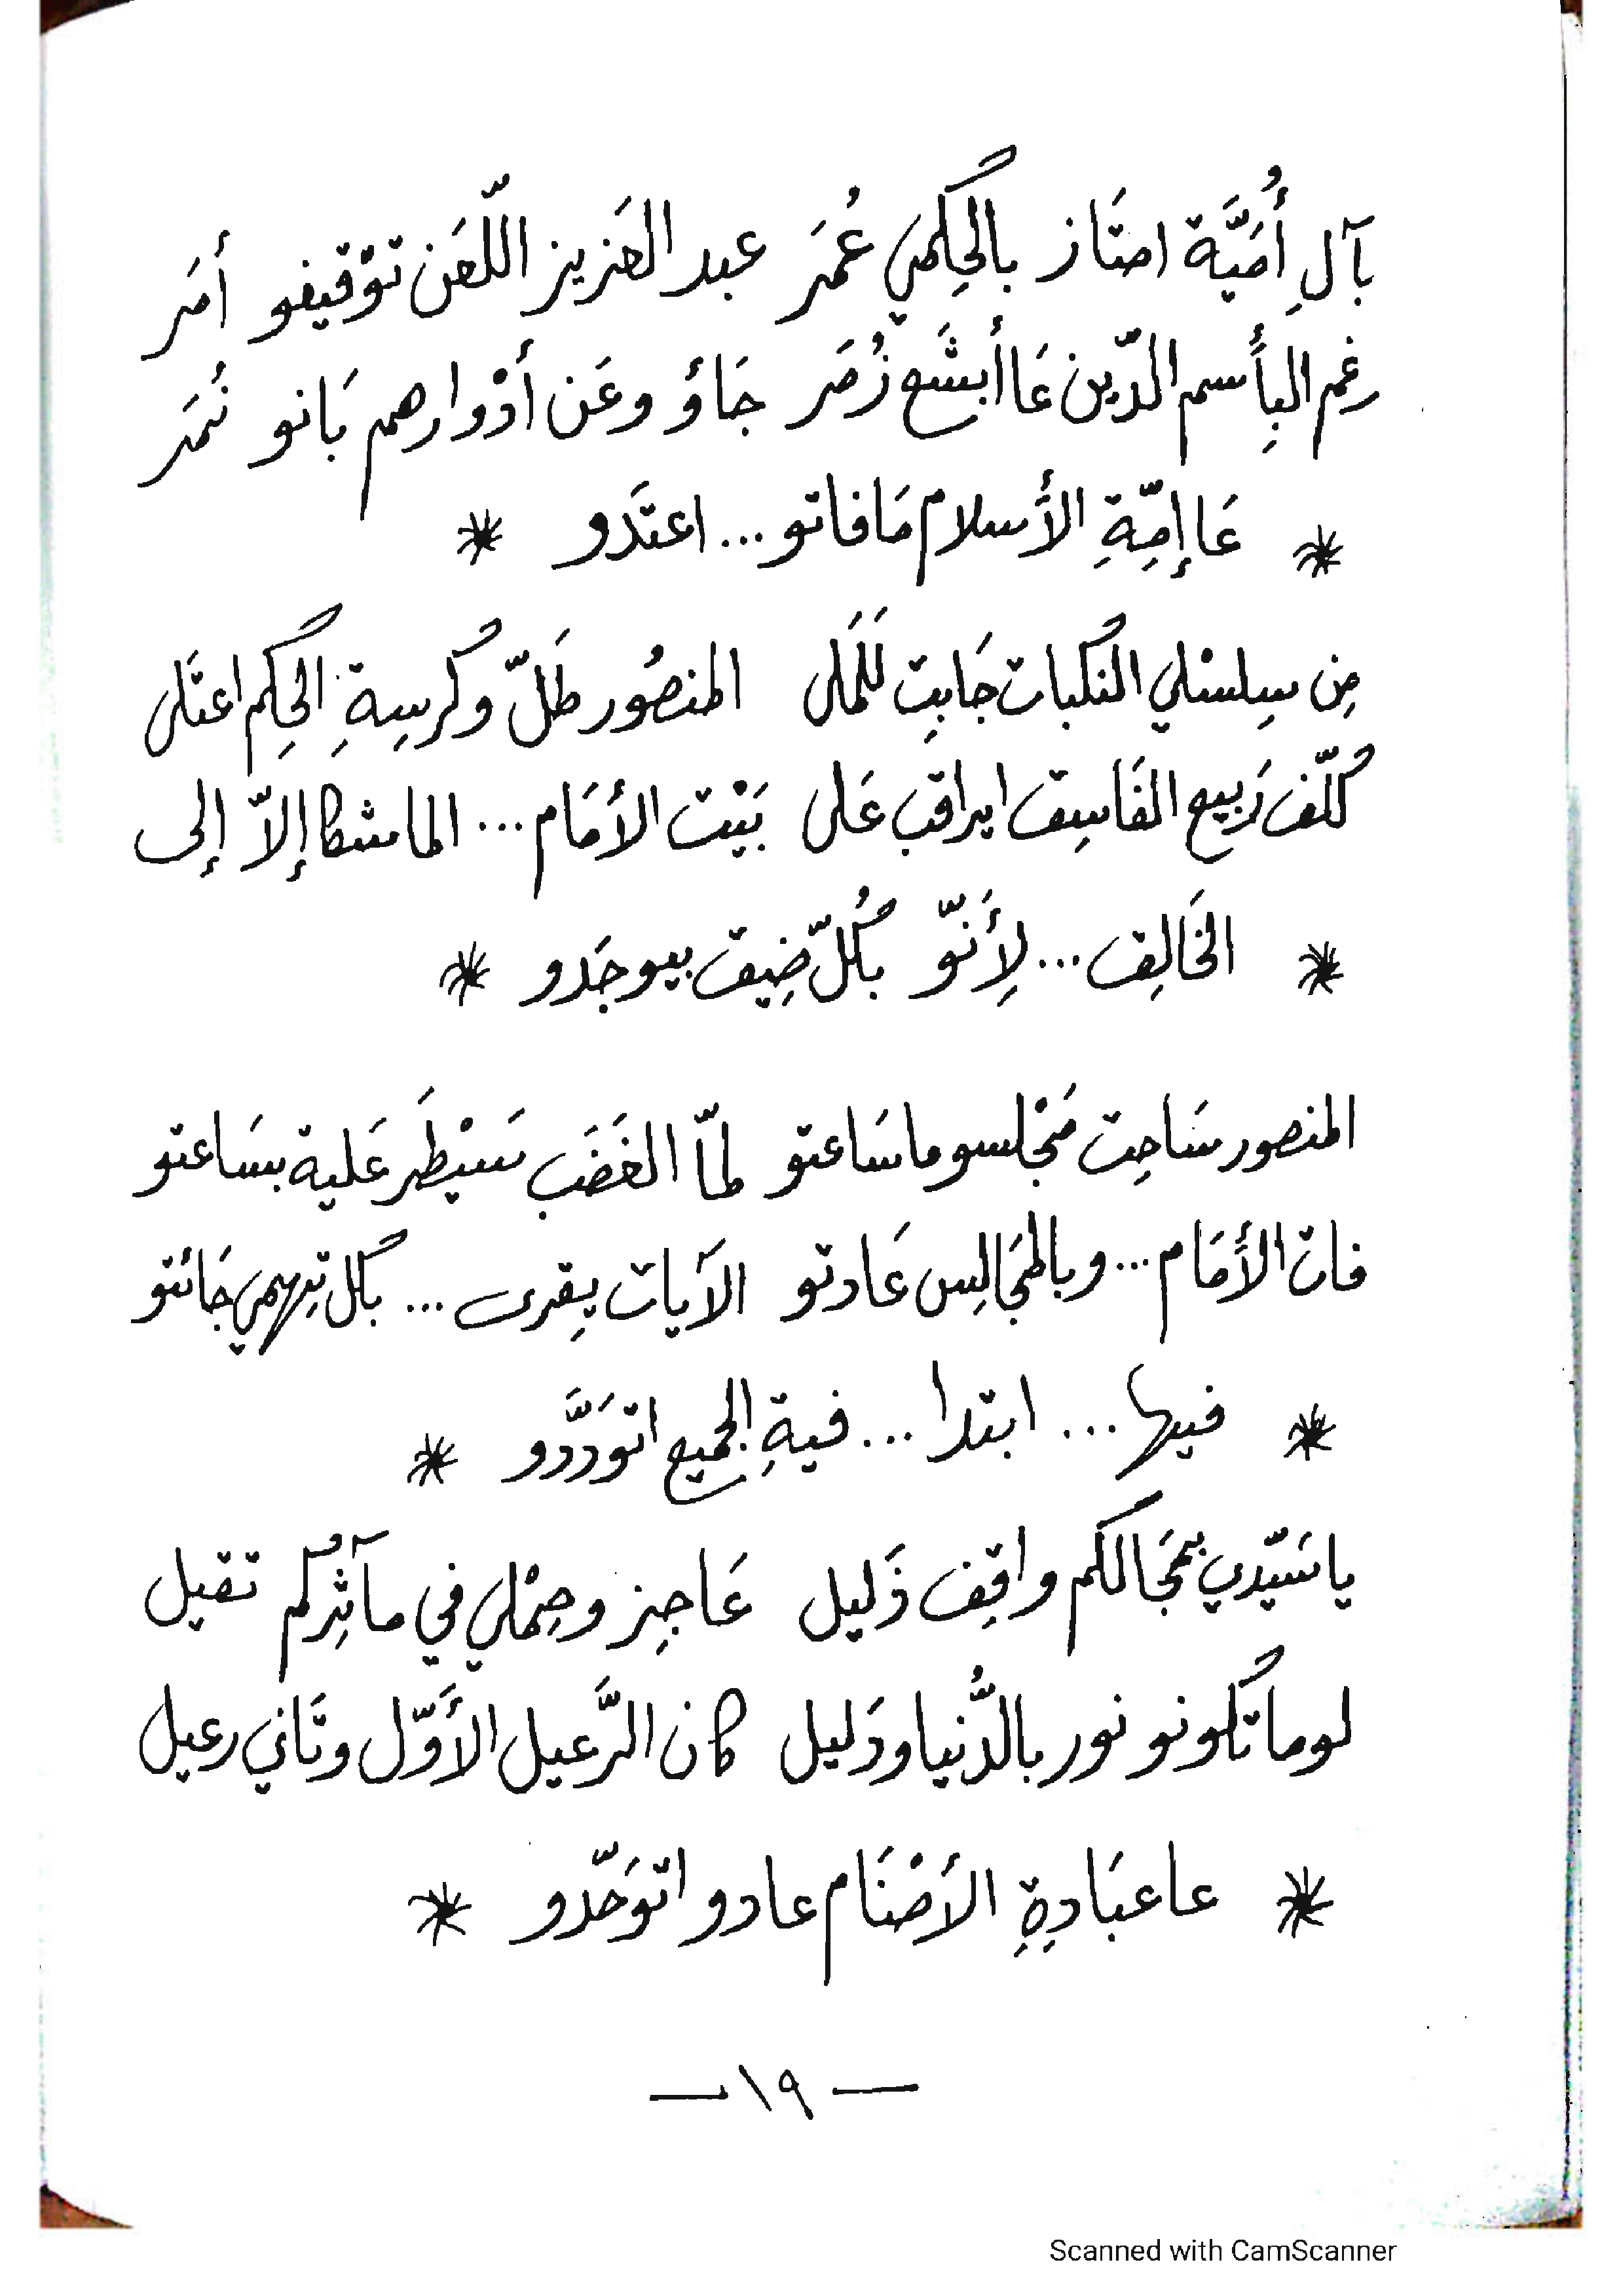 بآلِ أُمَيَّة امتَاز بالحِكمي عُمَر عبد العَزيز اللّعَن توْقيفو أمَر
رغم البِأَسم الدّين عَا أَبشَع زُمَر جَاؤ وعَن أدْوارهم بَانو نُمَر
* عَا إمِّةِ الأَسلام مَا فاتو ... اعتَدو *
مِن سِلسْلي النّكبات جَابِت لَلمَلى المنصُور طَلّ وكُرسِةِ الحِكم اعتَلى
كُلّف رَبيع الفَاسِق ايراقب عَلى بَيْت الأمَام ... الما شكا إلاّ إلى
* الخَالِق ... لِأَنّو بكُلّ ضِيق بيوجَدو *
المنصور سَاحِت مَجْلسو ما سَاعتو لمّا الغَضَب سَيْطَر عَلية بسَاعتو
فات الأَمَام ... وبالمجَالِس عَادتو الآيات يِقرى ... بكُل تِهمي جَائتو
* فيها ... ابتدا ... فيةِ الجميع اتوَدَّدو *
يا سَيّدي بمجَالكم واقِف ذَليل عَاجِز وحِمْلي في مآثِرُكم تقيل
لو ما تكُونو نور بالدُّنيا ودَليل كان الرَّعيل الأَوّل وتَاني رعيل
* عا عبَادِةِ الأَصْنَام عادو اتوَحّدو *
— ١٩ —
Scanned with CamScanner